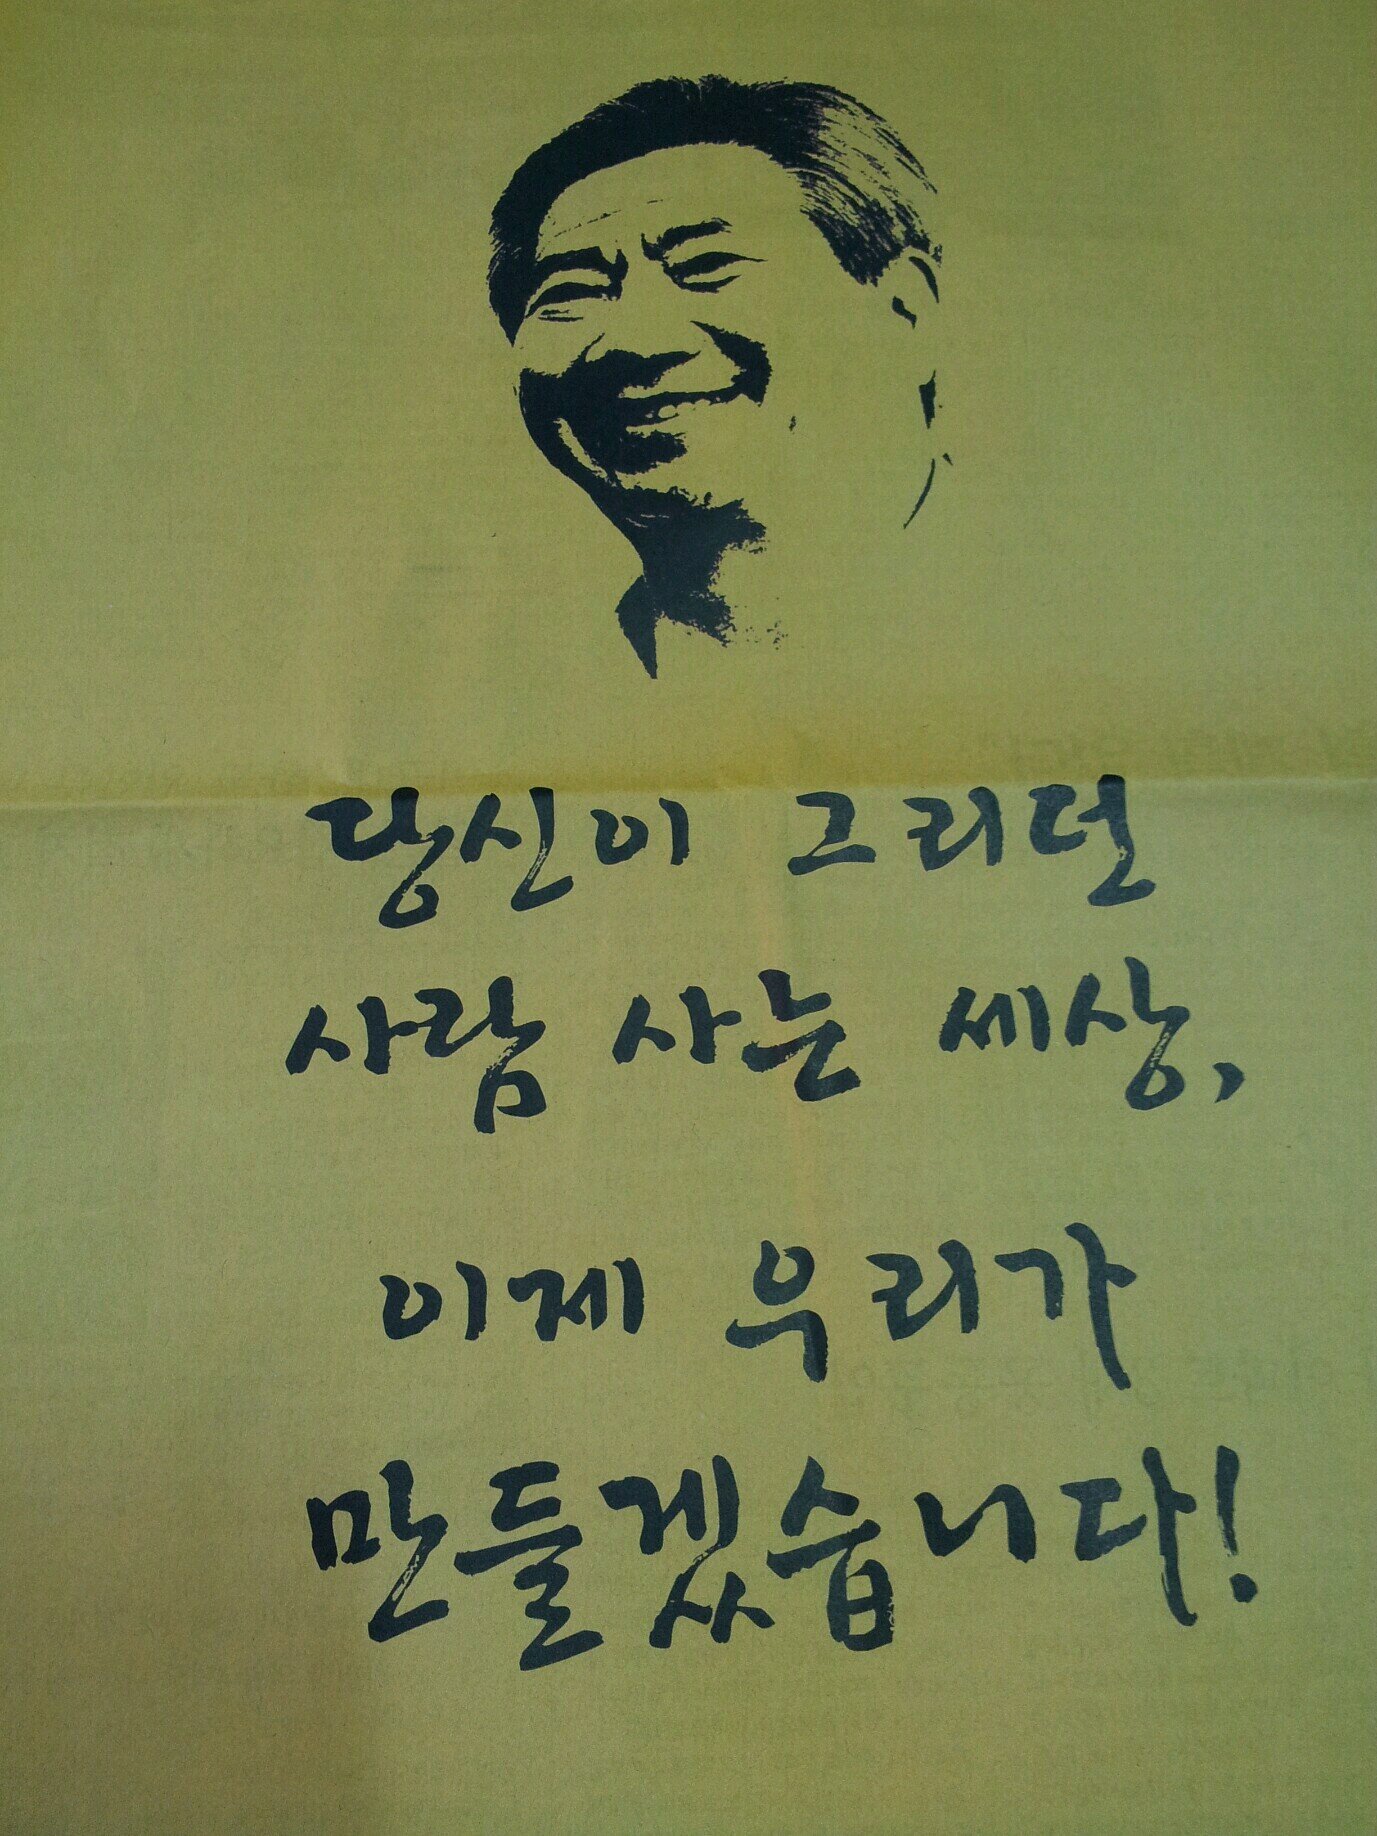 당신이 그리던
사람 사는 세상,
이제 우리가
만들겠습니다!